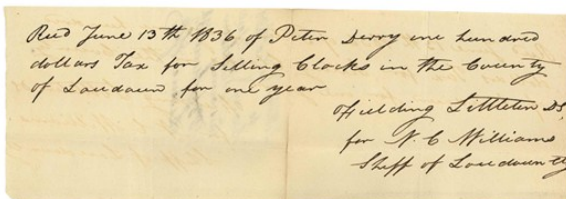 Recd June 13th 1836 of Peter Derry one hundred
dollars Tax for Selling Clocks in the County
of Loudoun for one year
Fielding Littleton DS,
for N. C Williams
Shff of Loudoun Cty